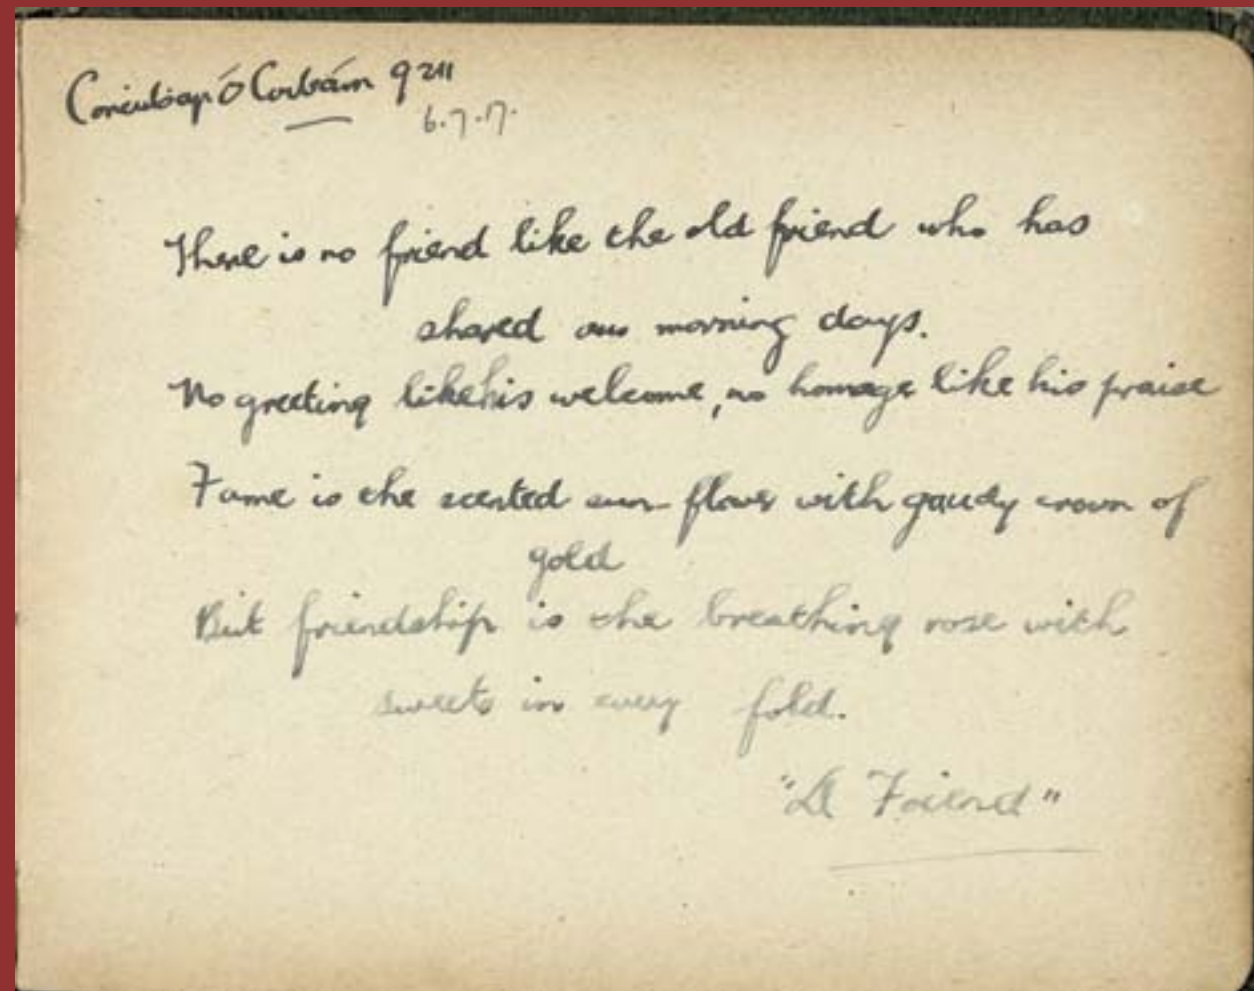 Conċubhar Ó Corbáin q 211
6.7.17.
There is no friend like the old friend who has
shared our morning days.
No greeting like his welcome, no homage like his praise
Fame is the scented sun-flower with gaudy crown of
gold
But friendship is the breathing rose with
sweets in every fold.
"A Friend"